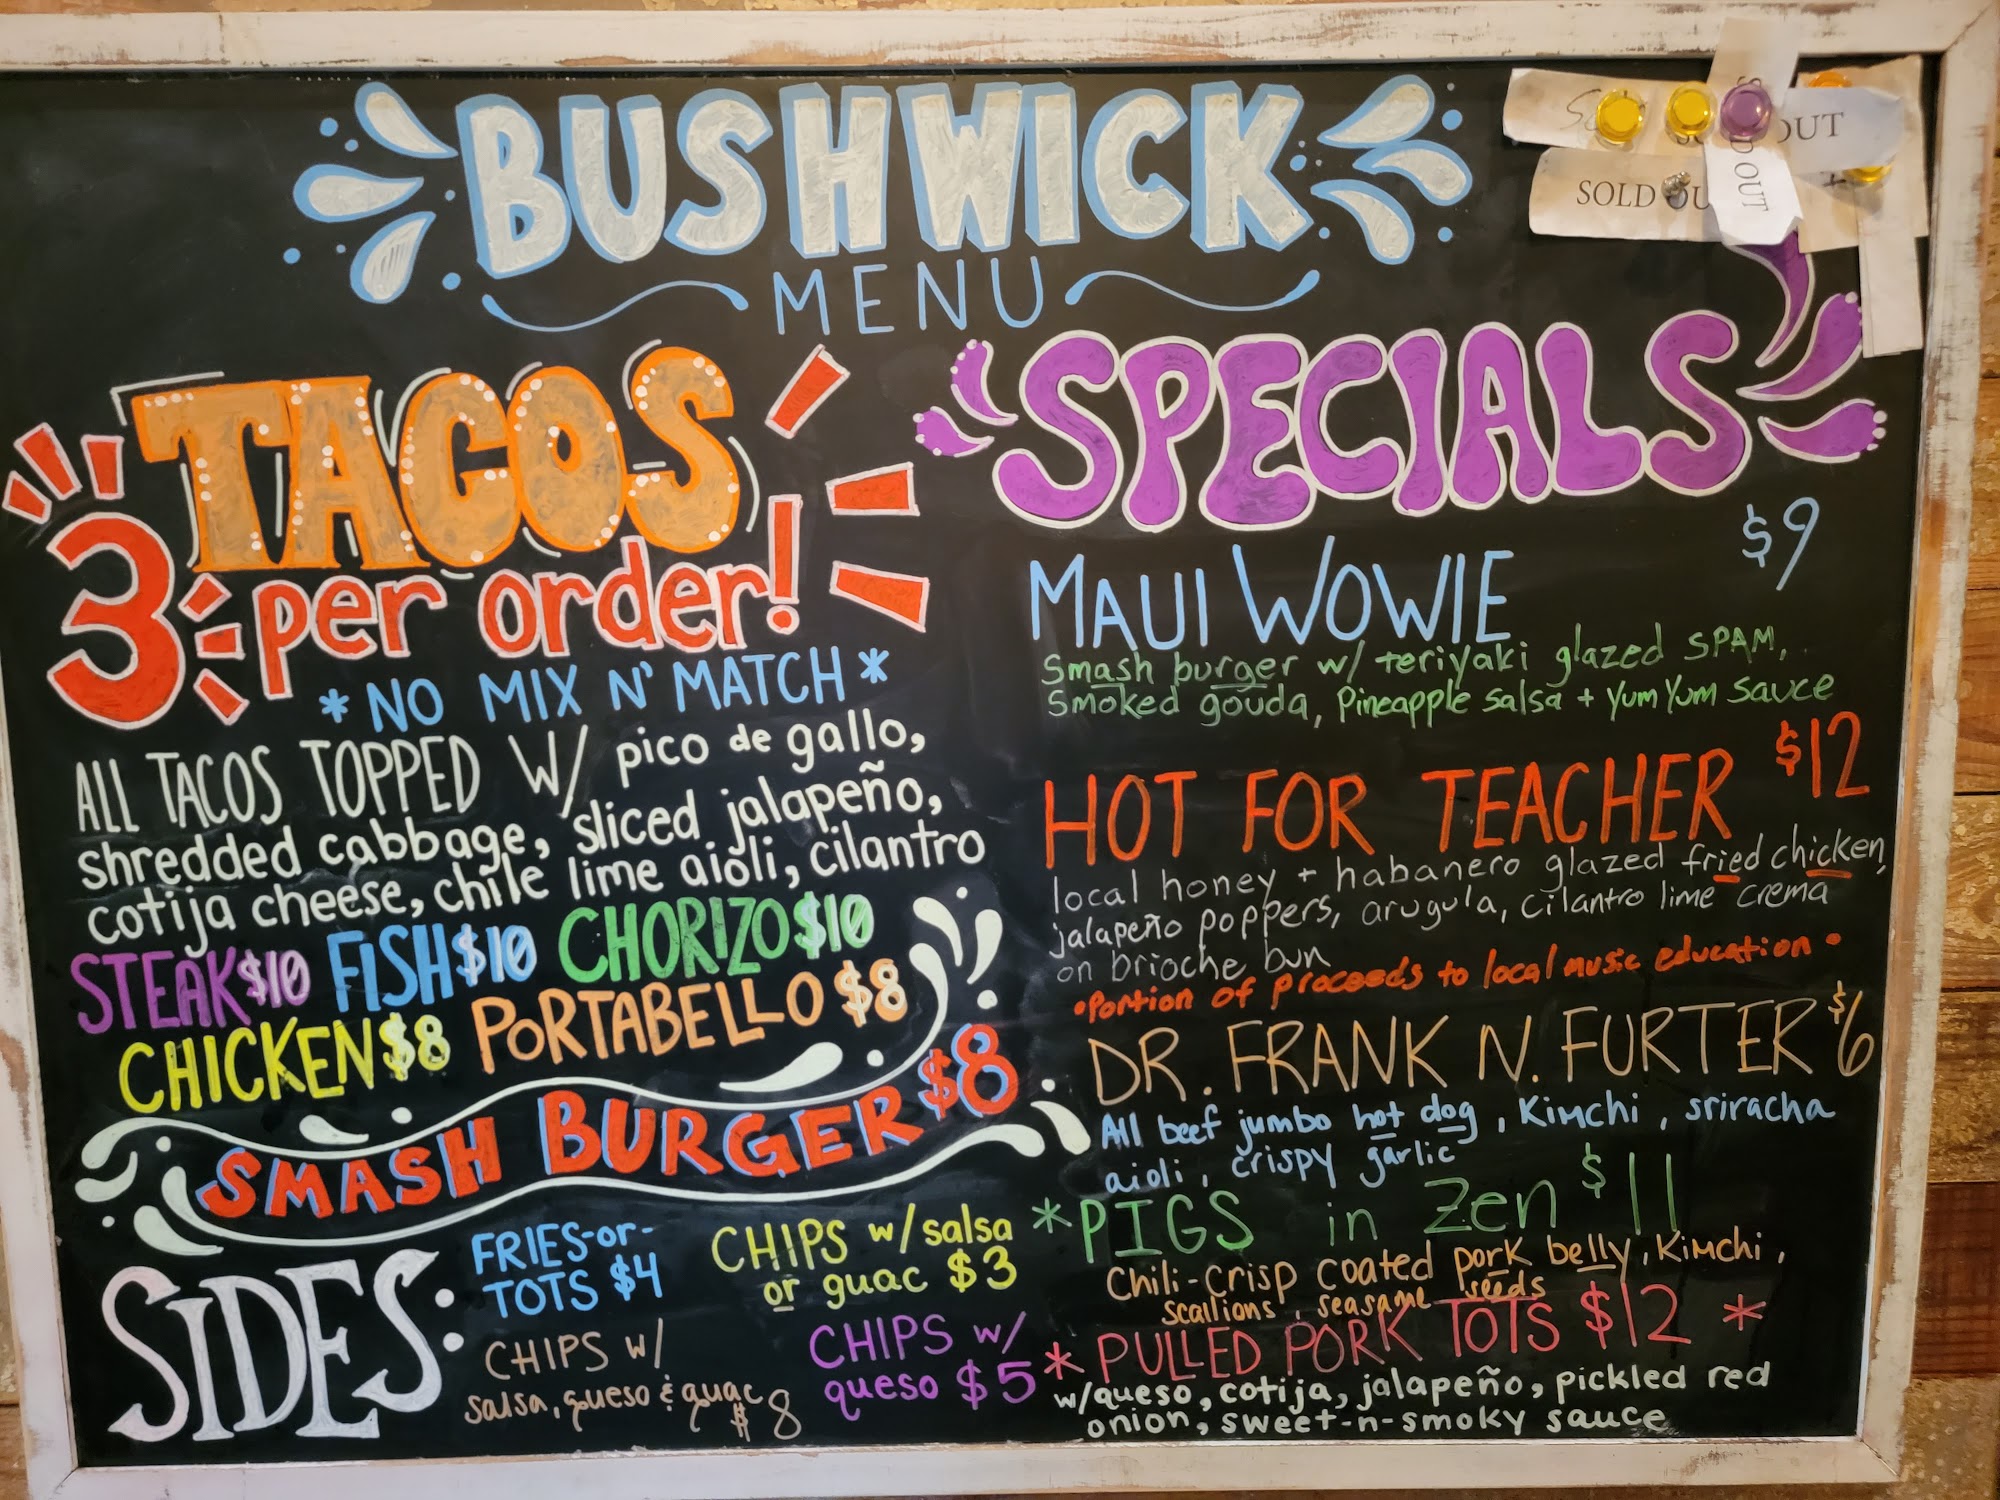 BUSHWICK
MENU
SOLD OUT
OUT
OUT
TACOS
3 per order!
*NO MIX N' MATCH*
ALL TACOS TOPPED W/ pico de gallo,
shredded cabbage, sliced jalapeño,
cotija cheese, chile lime aioli, cilantro
STEAK $10 FISH $10 CHORIZO $10
CHICKEN $8 PORTABELLO $8
SMASH BURGER $8
SIDES:
FRIES-or-
TOTS $4
CHIPS w/salsa
or guac $3
CHIPS w/
salsa, queso & guac
$8
CHIPS w/
queso $5
SPECIALS
$9
MAUI WOWIE
Smash burger w/ teriyaki glazed SPAM,
Smoked gouda, Pineapple salsa + YumYum sauce
HOT FOR TEACHER $12
local honey + habanero glazed fried chicken,
jalapeño poppers, arugula, cilantro lime crema
on brioche bun
•Portion of proceeds to local music education•
DR. FRANK N. FURTER $6
All beef jumbo hot dog, Kimchi, sriracha
aioli, crispy garlic
*PIGS in Zen $11
Chili-Crisp coated pork belly, Kimchi,
scallions, seasame seeds
*PULLED PORK TOTS $12 *
w/queso, cotija, jalapeño, pickled red
onion, sweet-n-smoky sauce